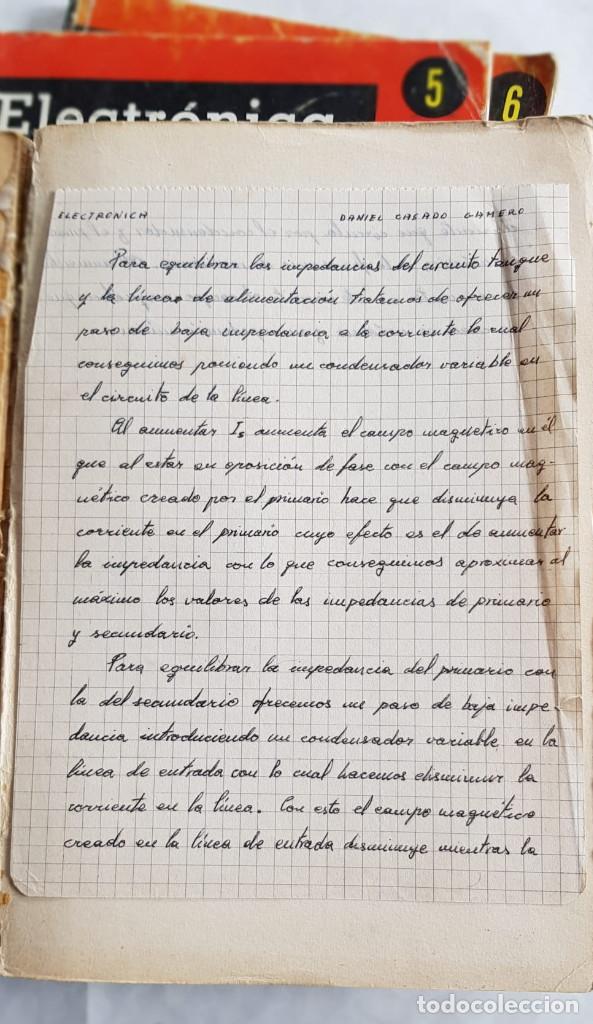 5
6
Electrónica
ELECTRONICA DANIEL CASADO GAMERO
Para equilibrar las impedancias del circuito tanque
y la línea de alimentación tratamos de ofrecer un
paso de baja impedancia a la corriente lo cual
conseguimos poniendo un condensador variable en
el circuito de la línea.
Al aumentar Is aumenta el campo magnetico en él
que al estar en oposición de fase con el campo mag-
nético creado por el primario hace que disminuya la
corriente en el primario cuyo efecto es el de aumentar
la impedancia con lo que conseguimos aproximar al
máximo los valores de las impedancias de primario
y secundario.
Para equilibrar la impedancia del primario con
la del secundario ofrecemos un paso de baja impe-
dancia introduciendo un condensador variable en la
línea de entrada con lo cual hacemos disminuir la
corriente en la línea. Con esto el campo magnético
creado en la línea de entrada disminuye mientras la
todocoleccion